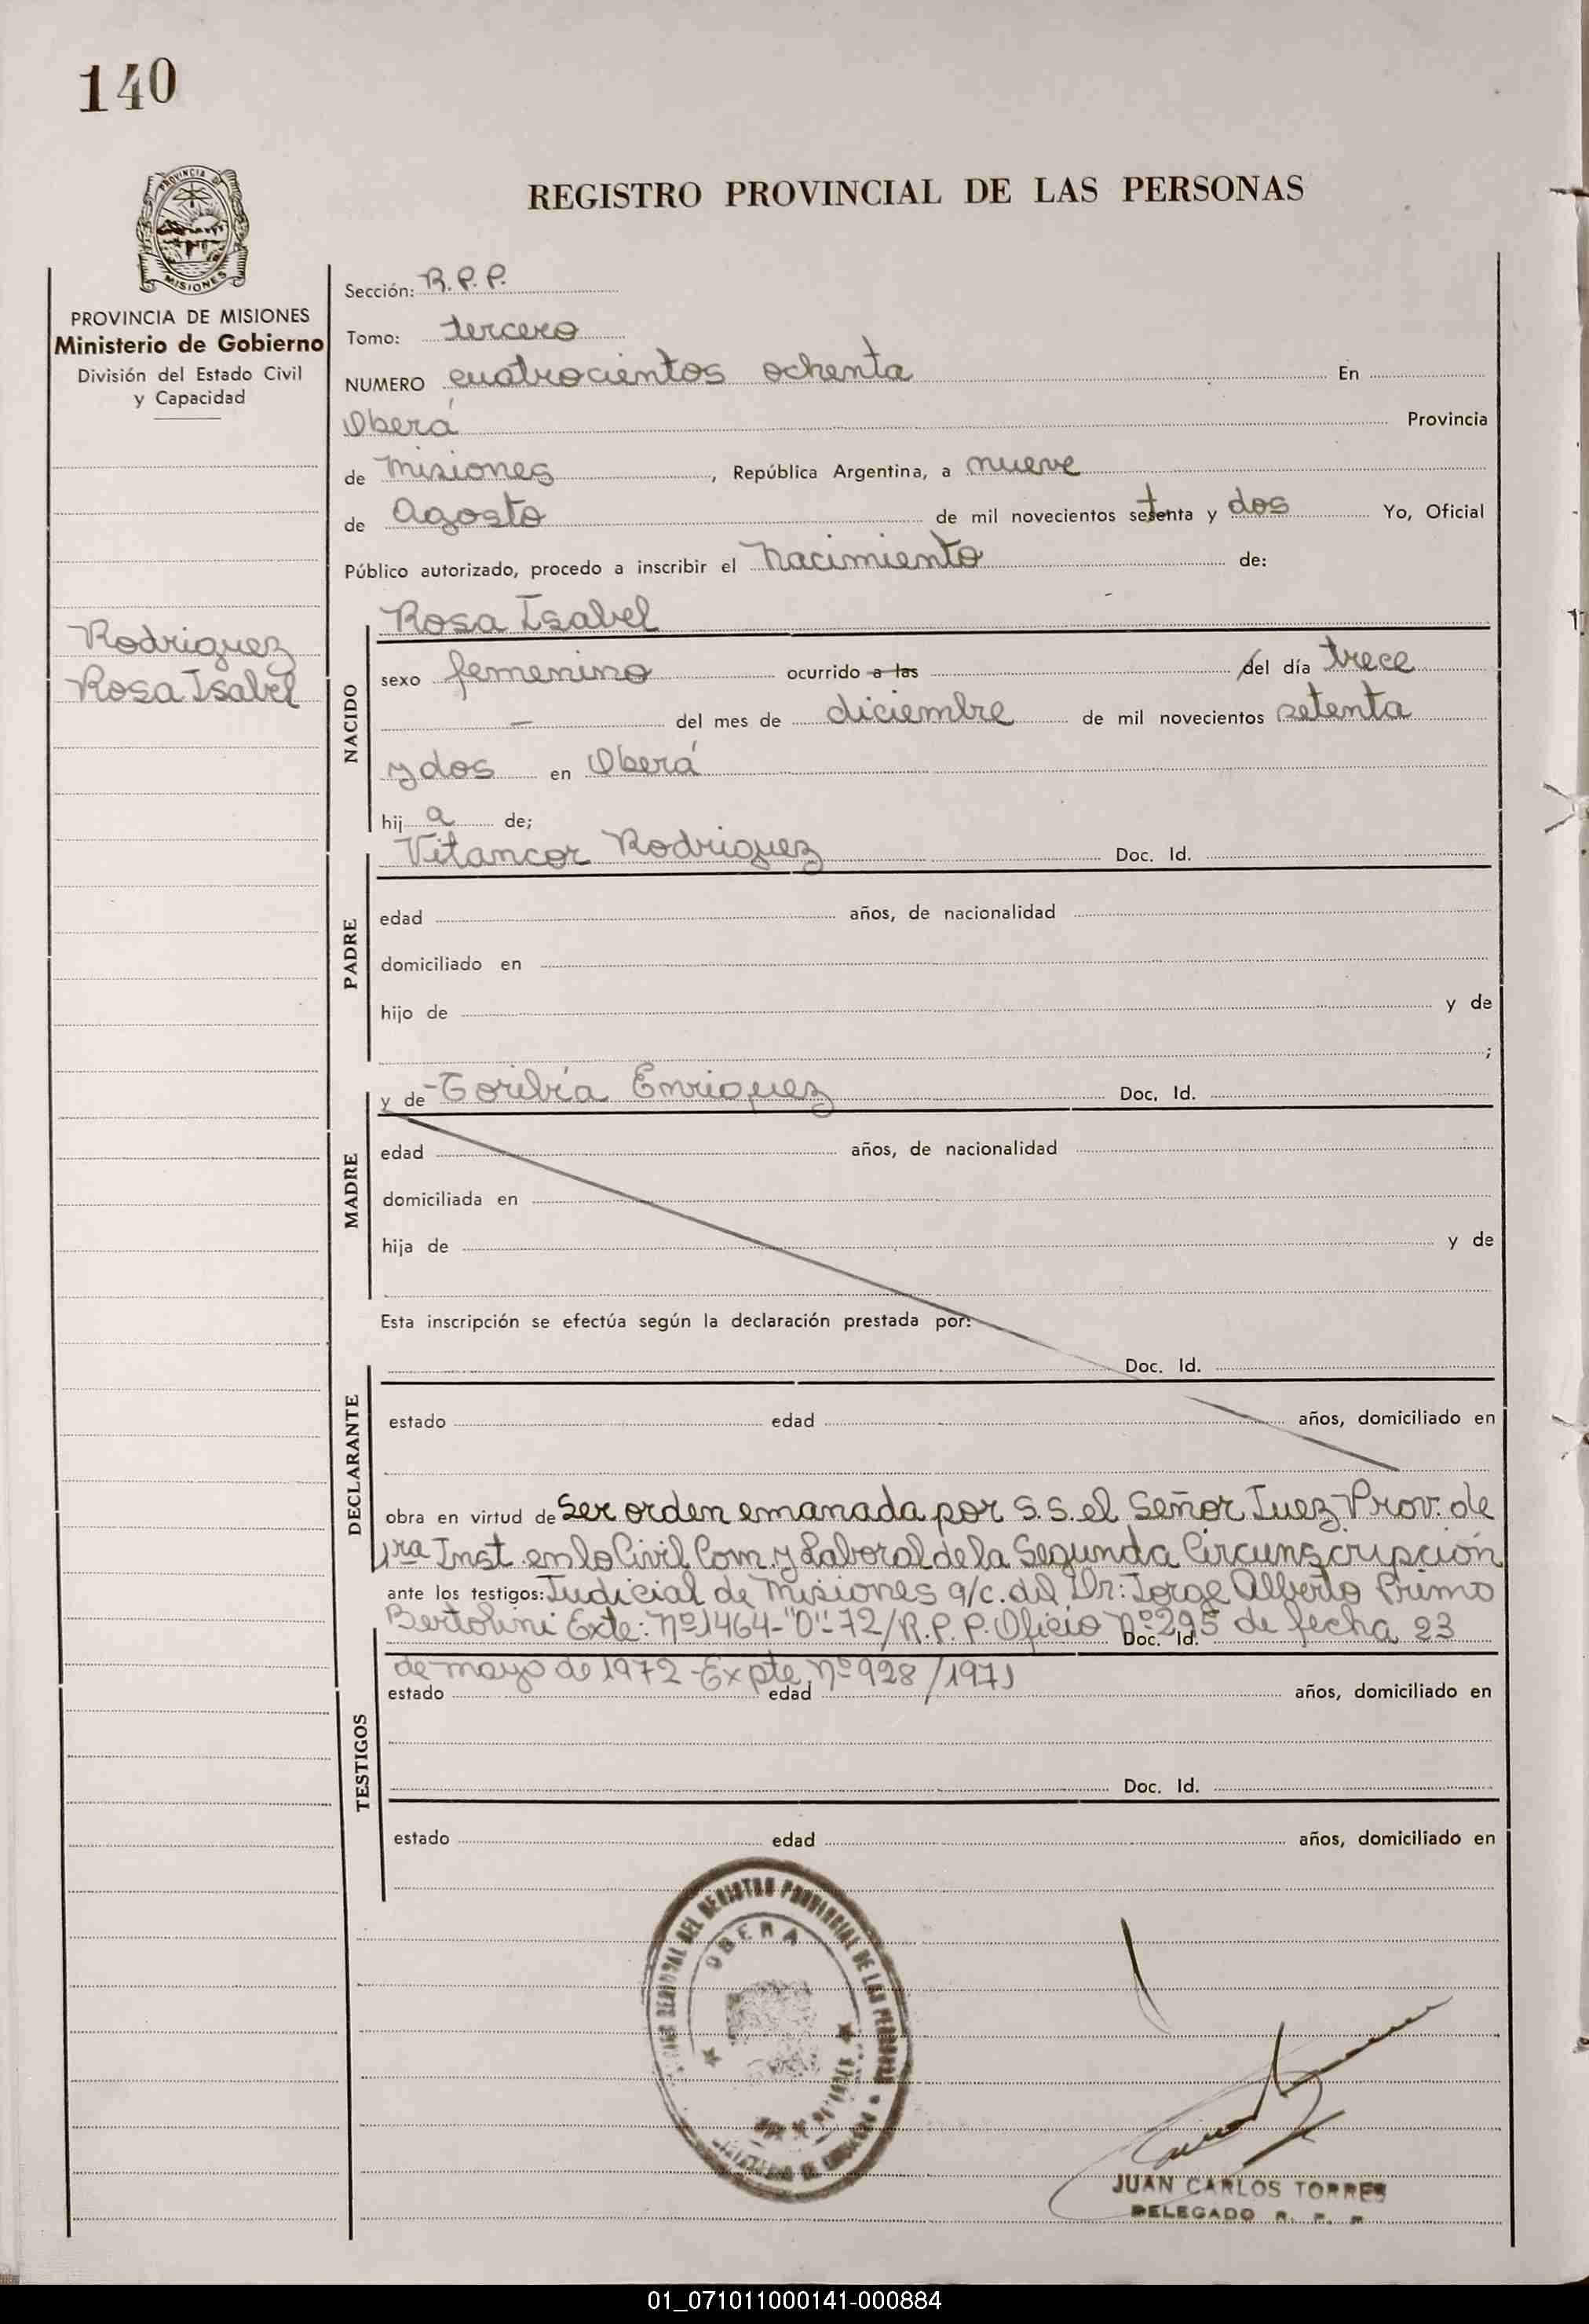 140
PROVINCIA DE
MISIONES
REGISTRO PROVINCIAL DE LAS PERSONAS
PROVINCIA DE MISIONES
Ministerio de Gobierno
División del Estado Civil
y Capacidad
Rodriguez
Rosa Isabel
Sección: R.P.P.
Tomo: tercero
NUMERO cuatrocientos ochenta En
Oberá Provincia
de Misiones, República Argentina, a nueve
de Agosto de mil novecientos setenta y dos Yo, Oficial
Público autorizado, procedo a inscribir el nacimiento de:
NACIDO
Rosa Isabel
sexo femenino ocurrido a las del día trece
— del mes de diciembre de mil novecientos setenta
y dos en Oberá
hij a de;
PADRE
Vitancor Rodriguez Doc. Id.
edad años, de nacionalidad
domiciliado en
hijo de y de
;
MADRE
y de Toribia Enriquez Doc. Id.
edad años, de nacionalidad
domiciliada en
hija de y de
Esta inscripción se efectúa según la declaración prestada por:
DECLARANTE
Doc. Id.
estado edad años, domiciliado en
obra en virtud de Ser orden emanada por S.S. el Señor Juez Prov. de
1ra Inst en lo Civil Com. y Laboral de la Segunda Circunscripción
ante los testigos: Judicial de Misiones a/c. del Dr: Jorge Alberto Primo
Bertolini Exte: Nº1464-"O"-72/R.P.P. Oficio Nº295 de fecha 23
Doc. Id.
de mayo de 1972 - Expte. Nº928/1971
TESTIGOS
estado edad años, domiciliado en
Doc. Id.
estado edad años, domiciliado en
DEL REGISTRO PROVINCIAL DE LAS PERSONAS
OBERA
JUAN CARLOS TORRES
DELEGADO R. P. P.
01_071011000141-000884